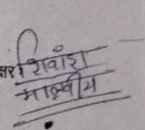 शिवांश
मालवीय